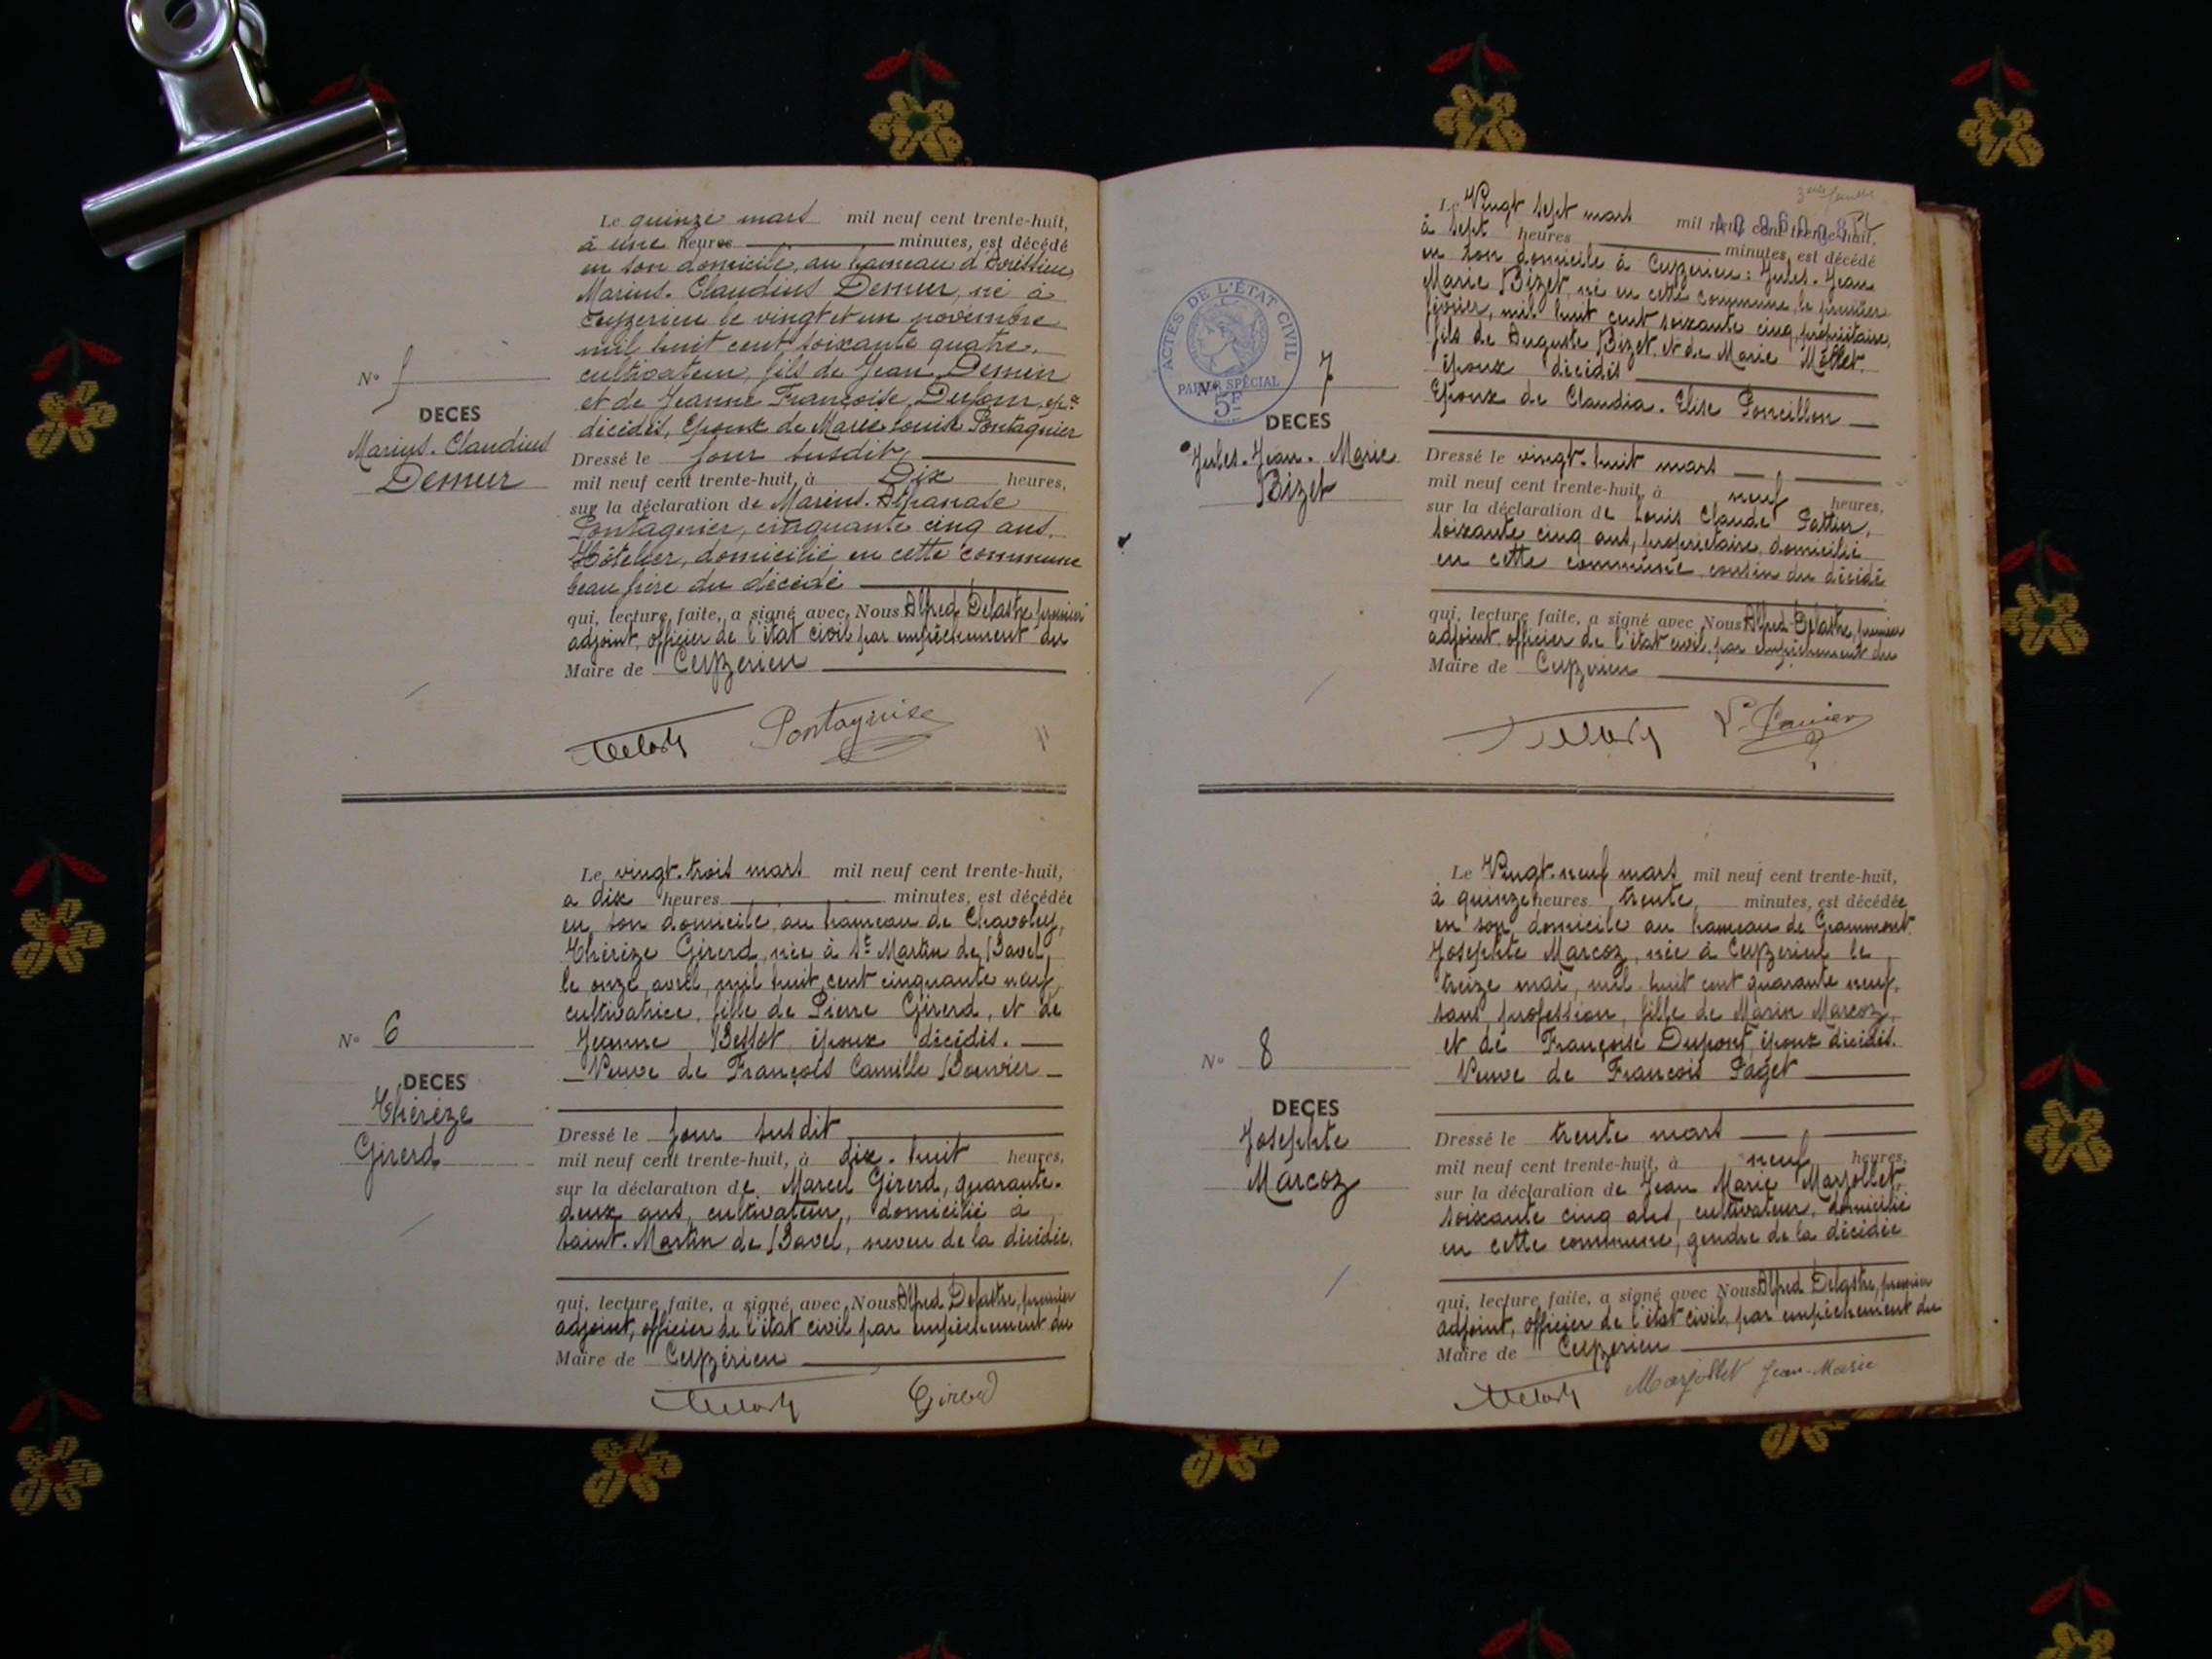 Le quinze mars mil neuf cent trente-huit,
à une heures minutes, est décédé
en son domicile, au hameau d'Avrissieu,
Marius. Claudius Demeur, né à
Ceyzerieu le vingt et un novembre
mil huit cent soixante quatre,
cultivateur, fils de Jean Demeur
et de Jeanne Françoise Dufour, epx
décédés, Epoux de Marie Louise Pontagnier
Dressé le Jour susdit,
mil neuf cent trente-huit, à Dix heures,
sur la déclaration de Marius. Athanase
Pontagnier, cinquante cinq ans,
Hôtelier, domicilié en cette commune
beau frère du décédé
qui, lecture faite, a signé avec Nous Alfred Delastre, premier
adjoint, officier de l'état civil par empêchement du
Maire de Ceyzerieu
N° 5
DECES
Marius. Claudius
Demeur
Le vingt-trois mars mil neuf cent trente-huit,
à dix heures minutes, est décédée
en son domicile, au hameau de Chavoley,
Thérèze Girerd, née à St Martin de Bavel,
le onze avril, mil huit cent cinquante neuf,
cultivatrice, fille de Pierre Girerd, et de
Jeanne Bessot époux décédés.
Veuve de François Camille Bouvier
Dressé le Jour susdit
mil neuf cent trente-huit, à dix-huit heures,
sur la déclaration de Marcel Girerd, quarante-
deux ans, cultivateur, domicilié à
Saint-Martin de Bavel, neveu de la décédée.
qui, lecture faite, a signé avec Nous Alfred Delastre, premier
adjoint, officier de l'état civil par empêchement du
Maire de Ceyzérieu
Girerd
N° 6
DECES
Thérèze
Girerd
Le Vingt sept mars mil neuf cent trente-huit,
à sept heures minutes, est décédé
en son domicile à Ceyzerieu: Jules. Jean
Marie Bizet, né en cette commune, le premier
février, mil huit cent soixante cinq, propriétaire,
fils de Auguste Bizet, et de Marie Mollet,
époux décédés
Epoux de Claudia. Elise Poncillon
Dressé le vingt-huit mars
mil neuf cent trente-huit, à neuf heures,
sur la déclaration de Louis Claude
soixante cinq ans, propriétaire, domicilié
en cette commune, cousin du décédé
qui, lecture faite, a signé avec Nous Alfred Delastre, premier
adjoint, officier de l'état civil par empêchement du
Maire de Ceyzerieu
ACTES DE L'ÉTAT CIVIL
PAPIER SPÉCIAL
5F
N° 7
DECES
Jules. Jean. Marie
Bizet
Le Vingt-neuf mars mil neuf cent trente-huit,
à quinze heures trente, minutes, est décédée
en son domicile au hameau de Grammont
Josephte Marcoz, née à Ceyzerieu le
treize mai, mil huit cent quarante neuf,
sans profession, fille de Marin Marcoz,
et de Françoise Dupont, époux décédés.
Veuve de François Paget
Dressé le trente mars
mil neuf cent trente-huit, à neuf heures,
sur la déclaration de Jean Marie Marjollet,
soixante cinq ans, cultivateur, domicilié
en cette commune, gendre de la décédée
qui, lecture faite, a signé avec Nous Alfred Delastre, premier
adjoint, officier de l'état civil, par empêchement du
Maire de Ceyzerieu
Marjollet Jean-Marie
N° 8
DECES
Josephte
Marcoz